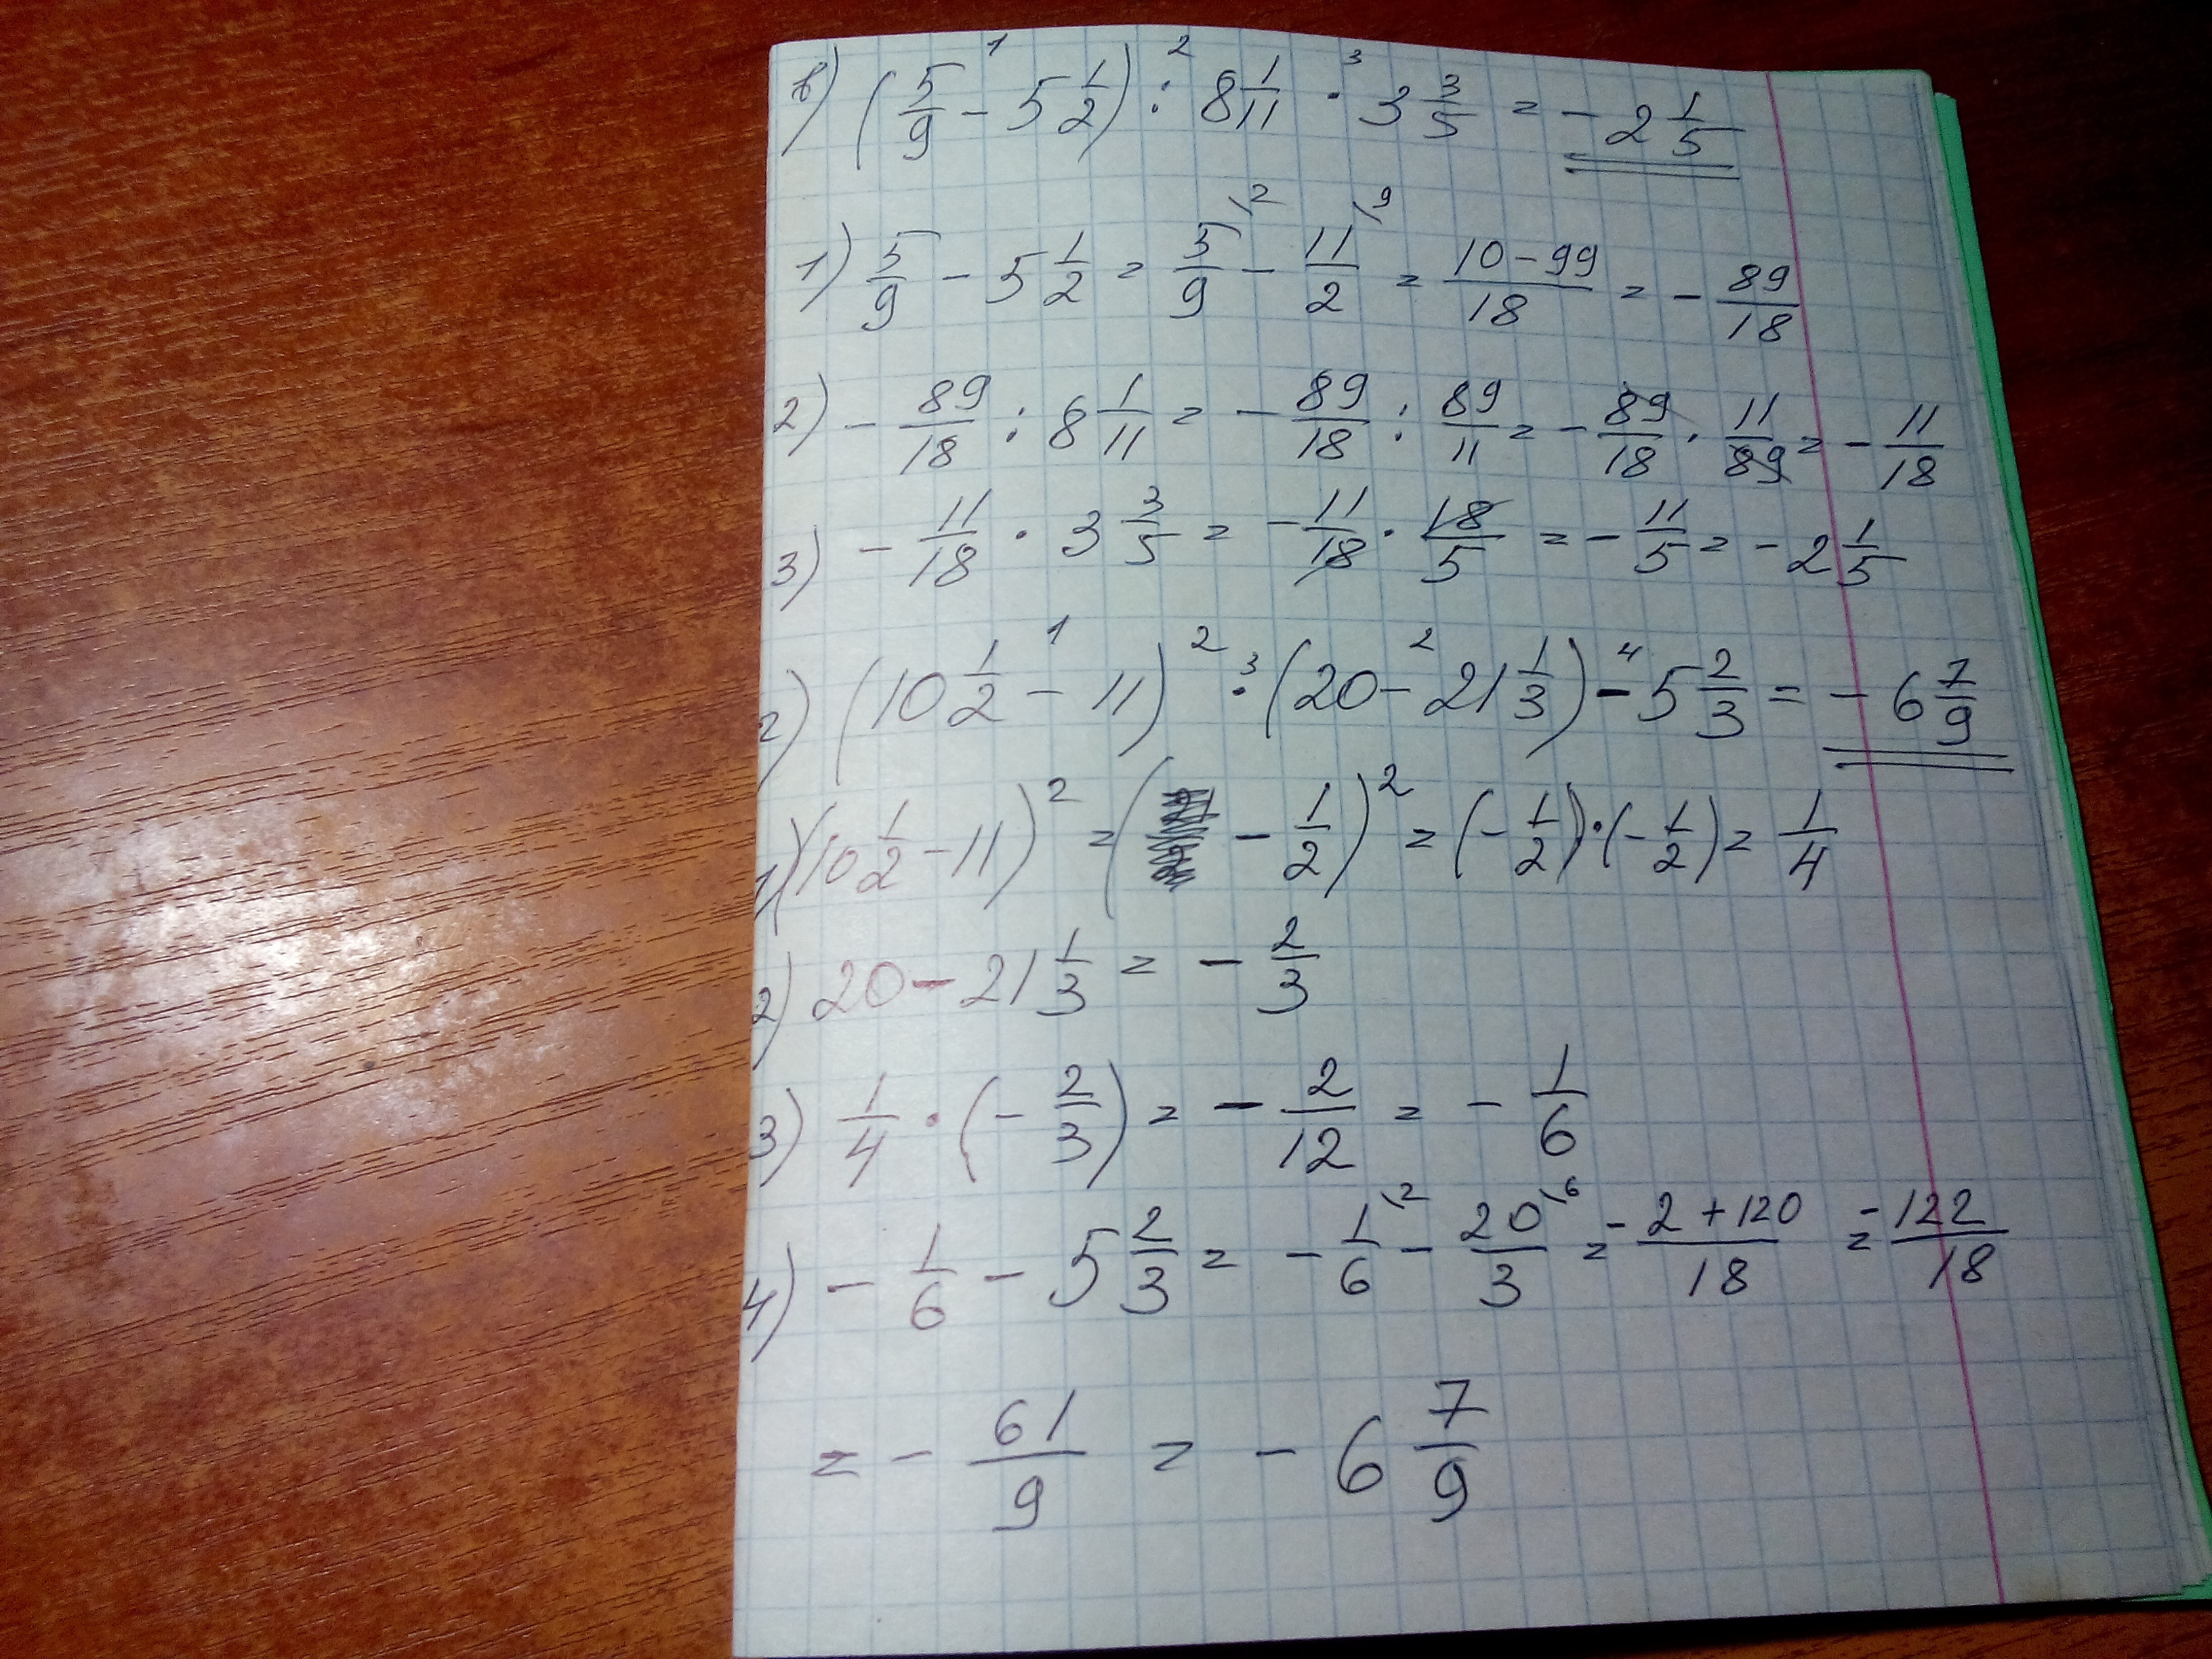 в) (5/9 - 5 1/2) : 8 1/11 · 3 3/5 = - 2 1/5
1) 5/9 - 5 1/2 = 5/9 \2 - 11/2 \9 = 10-99/18 = - 89/18
2) - 89/18 : 8 1/11 = - 89/18 : 89/11 = - 89/18 · 11/89 = - 11/18
3) - 11/18 · 3 3/5 = - 11/18 · 18/5 = - 11/5 = - 2 1/5
г) (10 1/2 - 11)² · (20 - 21 1/3) - 5 2/3 = - 6 7/9
1) (10 1/2 - 11)² = (- 1/2)² = (- 1/2) · (- 1/2) = 1/4
2) 20 - 21 1/3 = - 2/3
3) 1/4 · (- 2/3) = - 2/12 = - 1/6
4) - 1/6 - 5 2/3 = - 1/6 \2 - 20/3 \6 = - 2+120/18 = - 122/18
= - 61/9 = - 6 7/9